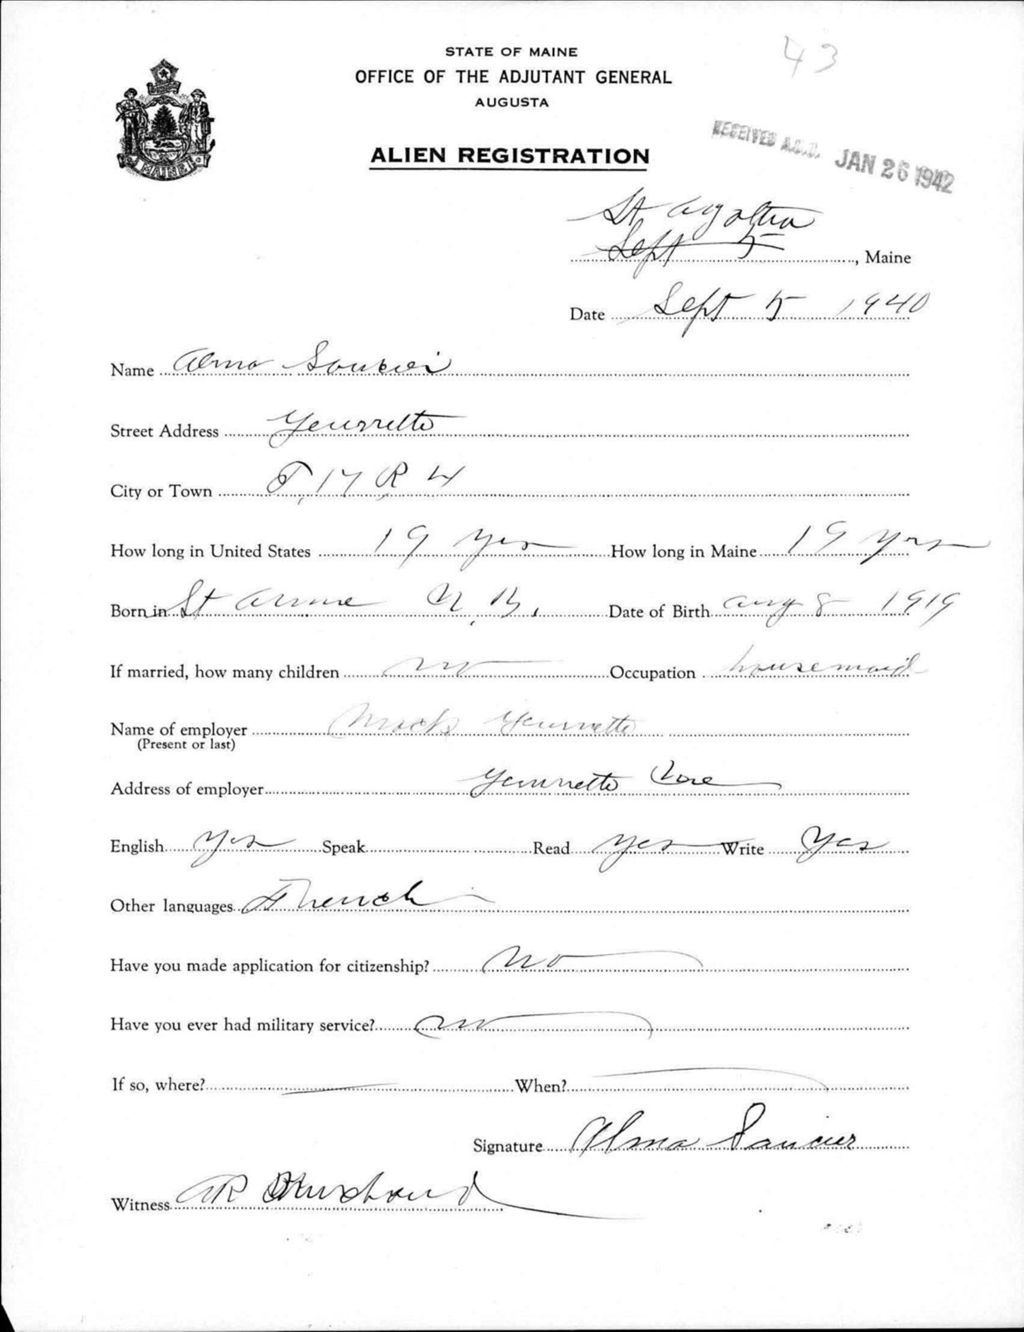 43
STATE OF MAINE
OFFICE OF THE ADJUTANT GENERAL
AUGUSTA
ALIEN REGISTRATION
RECEIVED A.G.O. JAN 26 1942
St Agatha
Sept 5, Maine
Date Sept 5 1940
Name Alma
Street Address
City or Town T. 17 R 4
How long in United States 19 yrs How long in Maine 19 yrs
Born in St Anne N. B. Date of Birth Aug 8 1919
If married, how many children no Occupation housemaid
Name of employer
(Present or last)
Address of employer
English Yes Speak Read Yes Write Yes
Other languages French
Have you made application for citizenship? No
Have you ever had military service? no
If so, where? When?
Signature Alma Saucier
Witness
MAINE